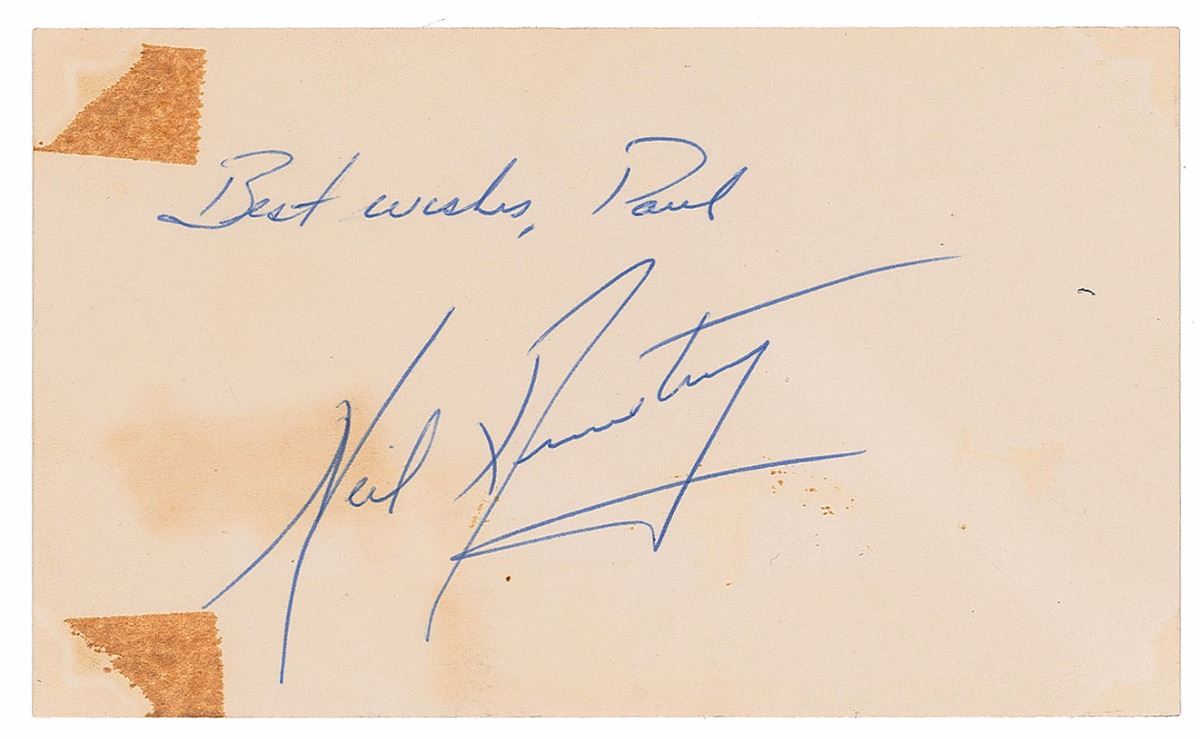 Best wishes, Paul
Neil Armstrong